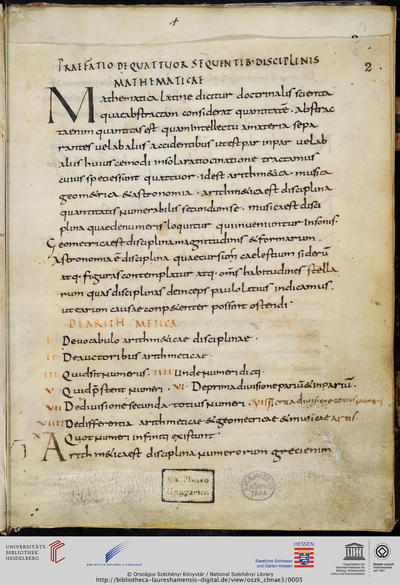 PRAEFATIO DE QUATTUOR SEQUENTIB· DISCIPLINIS
MATHEMATICAE
2
Mathematica latine dicitur doctrinalis scientia
quae abstractam considerat quantitatē· abstrac
ta enim quantitas est quam intellectu a materia sepa
rantes vel ab aliis accidentibus ut est par inpar vel ab
aliis huiuscemodi in sola ratiocinatione tractamus
cuius species sunt quattuor· id est arithmetica· musica
geometrica & astronomia· arithmetica est disciplina
quantitatis numerabilis secundum se· musica est disci
plina quae de numeris loquitur qui inveniuntur in sonis·
Geometrica est disciplina magnitudinis & formarum
astronomia ē disciplina quae cursum caelestium siderū
atq· figuras contemplatur atq· omīs habitudines stella
rum quas disciplinas deinceps paulo latius indicamus
ut earum causae competenter possint ostendi·
DE ARITHMETICA
I De vocabulo arithmeticae disciplinae·
II De auctoribus arithmeticae·
III Quid sit numerus· IIII Unde numeri dicti
V Quid p̄stent numeri· VI· De prima divisione pariū & inpariū·
VII De divisione secunda totius numeri·
VIIII De differentia arithmeticae & geometricae & musicae artis
X Quot numeri infiniti existunt
Arithmetica est disciplina numerorum greci enim
Ex Museo
Hungarico
UNIVERSITÄTS-
BIBLIOTHEK
HEIDELBERG
BIBLIOTHECA NATIONALIS HUNGARIAE
HESSEN
Staatliche Schlösser
und Gärten Hessen
© Országos Széchényi Könyvtár / National Széchényi Library
http://bibliotheca-laureshamensis-digital.de/view/oszk_clmae3/0005